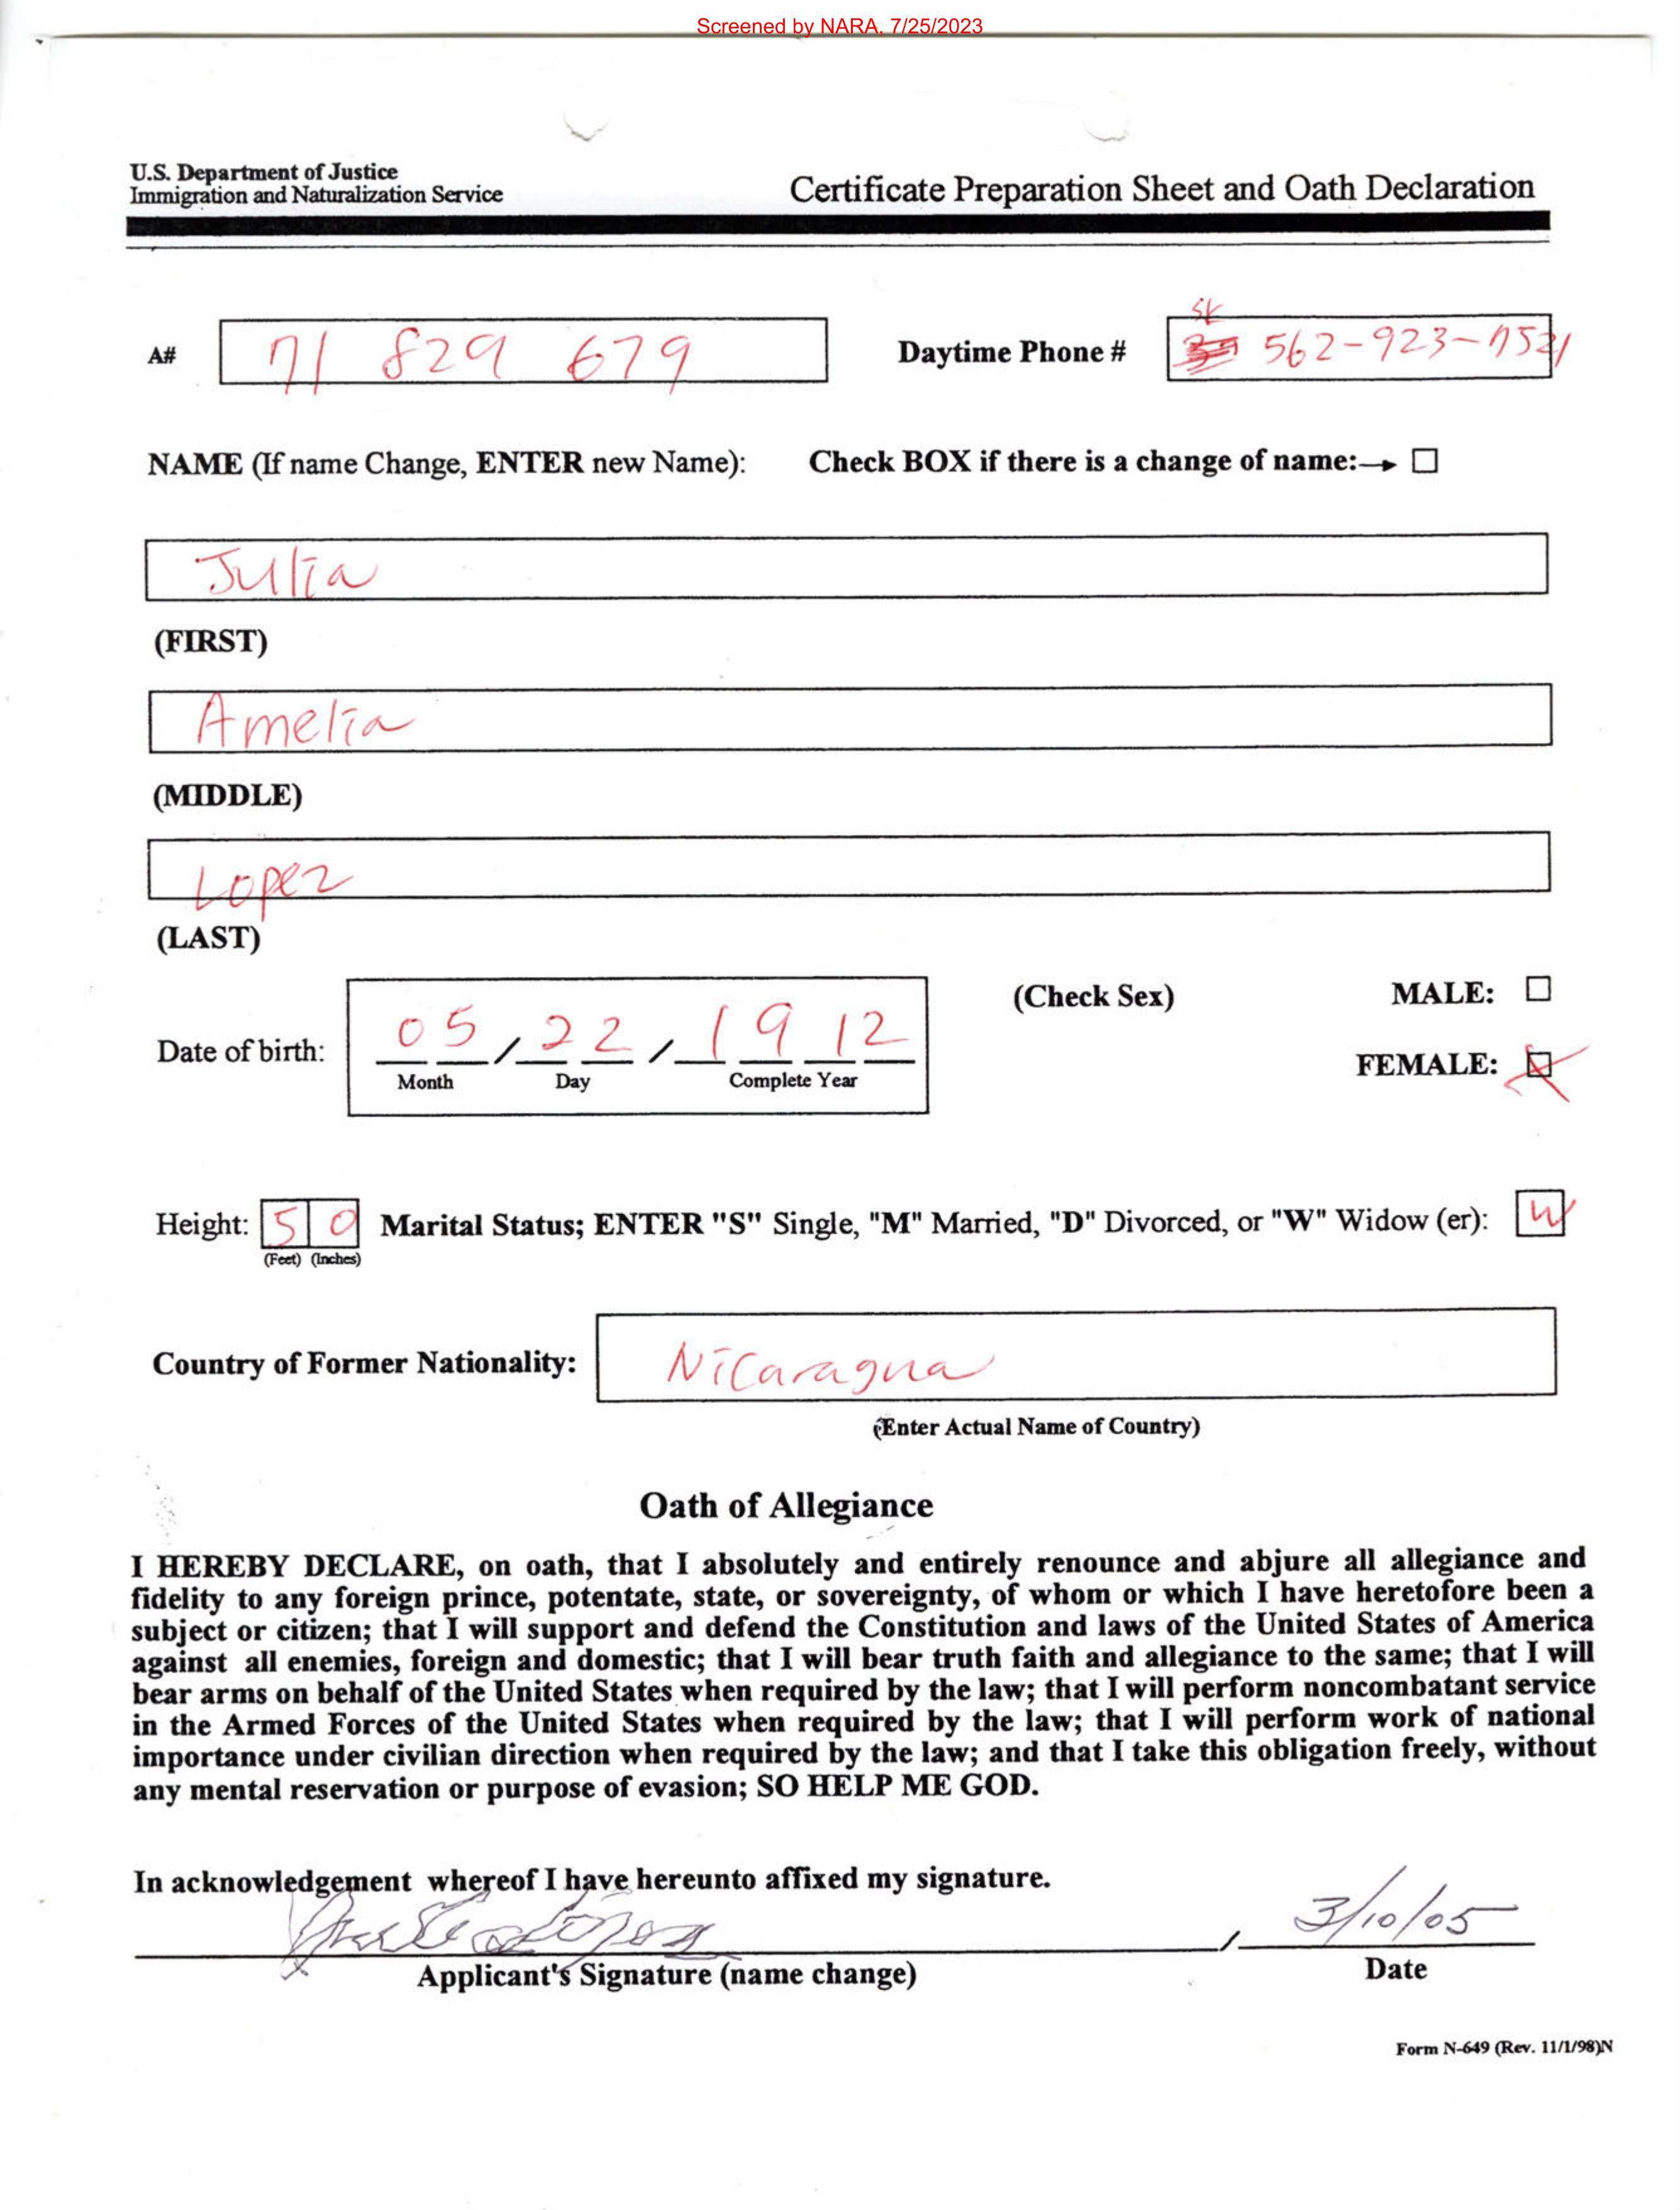 Screened by NARA, 7/25/2023
U.S. Department of Justice
Immigration and Naturalization Service
Certificate Preparation Sheet and Oath Declaration
A# 71 829 679
SK
Daytime Phone # 562-923-7521
NAME (If name Change, ENTER new Name): Check BOX if there is a change of name:→ ☐
Julia
(FIRST)
Amelia
(MIDDLE)
Lopez
(LAST)
(Check Sex) MALE: ☐
Date of birth: 05/22/1912
Month Day Complete Year
FEMALE: ☒
Height: 5 0 Marital Status; ENTER "S" Single, "M" Married, "D" Divorced, or "W" Widow (er): W
(Feet) (Inches)
Country of Former Nationality: Nicaragua
(Enter Actual Name of Country)
Oath of Allegiance
I HEREBY DECLARE, on oath, that I absolutely and entirely renounce and abjure all allegiance and
fidelity to any foreign prince, potentate, state, or sovereignty, of whom or which I have heretofore been a
subject or citizen; that I will support and defend the Constitution and laws of the United States of America
against all enemies, foreign and domestic; that I will bear truth faith and allegiance to the same; that I will
bear arms on behalf of the United States when required by the law; that I will perform noncombatant service
in the Armed Forces of the United States when required by the law; that I will perform work of national
importance under civilian direction when required by the law; and that I take this obligation freely, without
any mental reservation or purpose of evasion; SO HELP ME GOD.
In acknowledgement whereof I have hereunto affixed my signature.
Julia Lopez / 3/10/05
Applicant's Signature (name change) Date
Form N-649 (Rev. 11/1/98)N